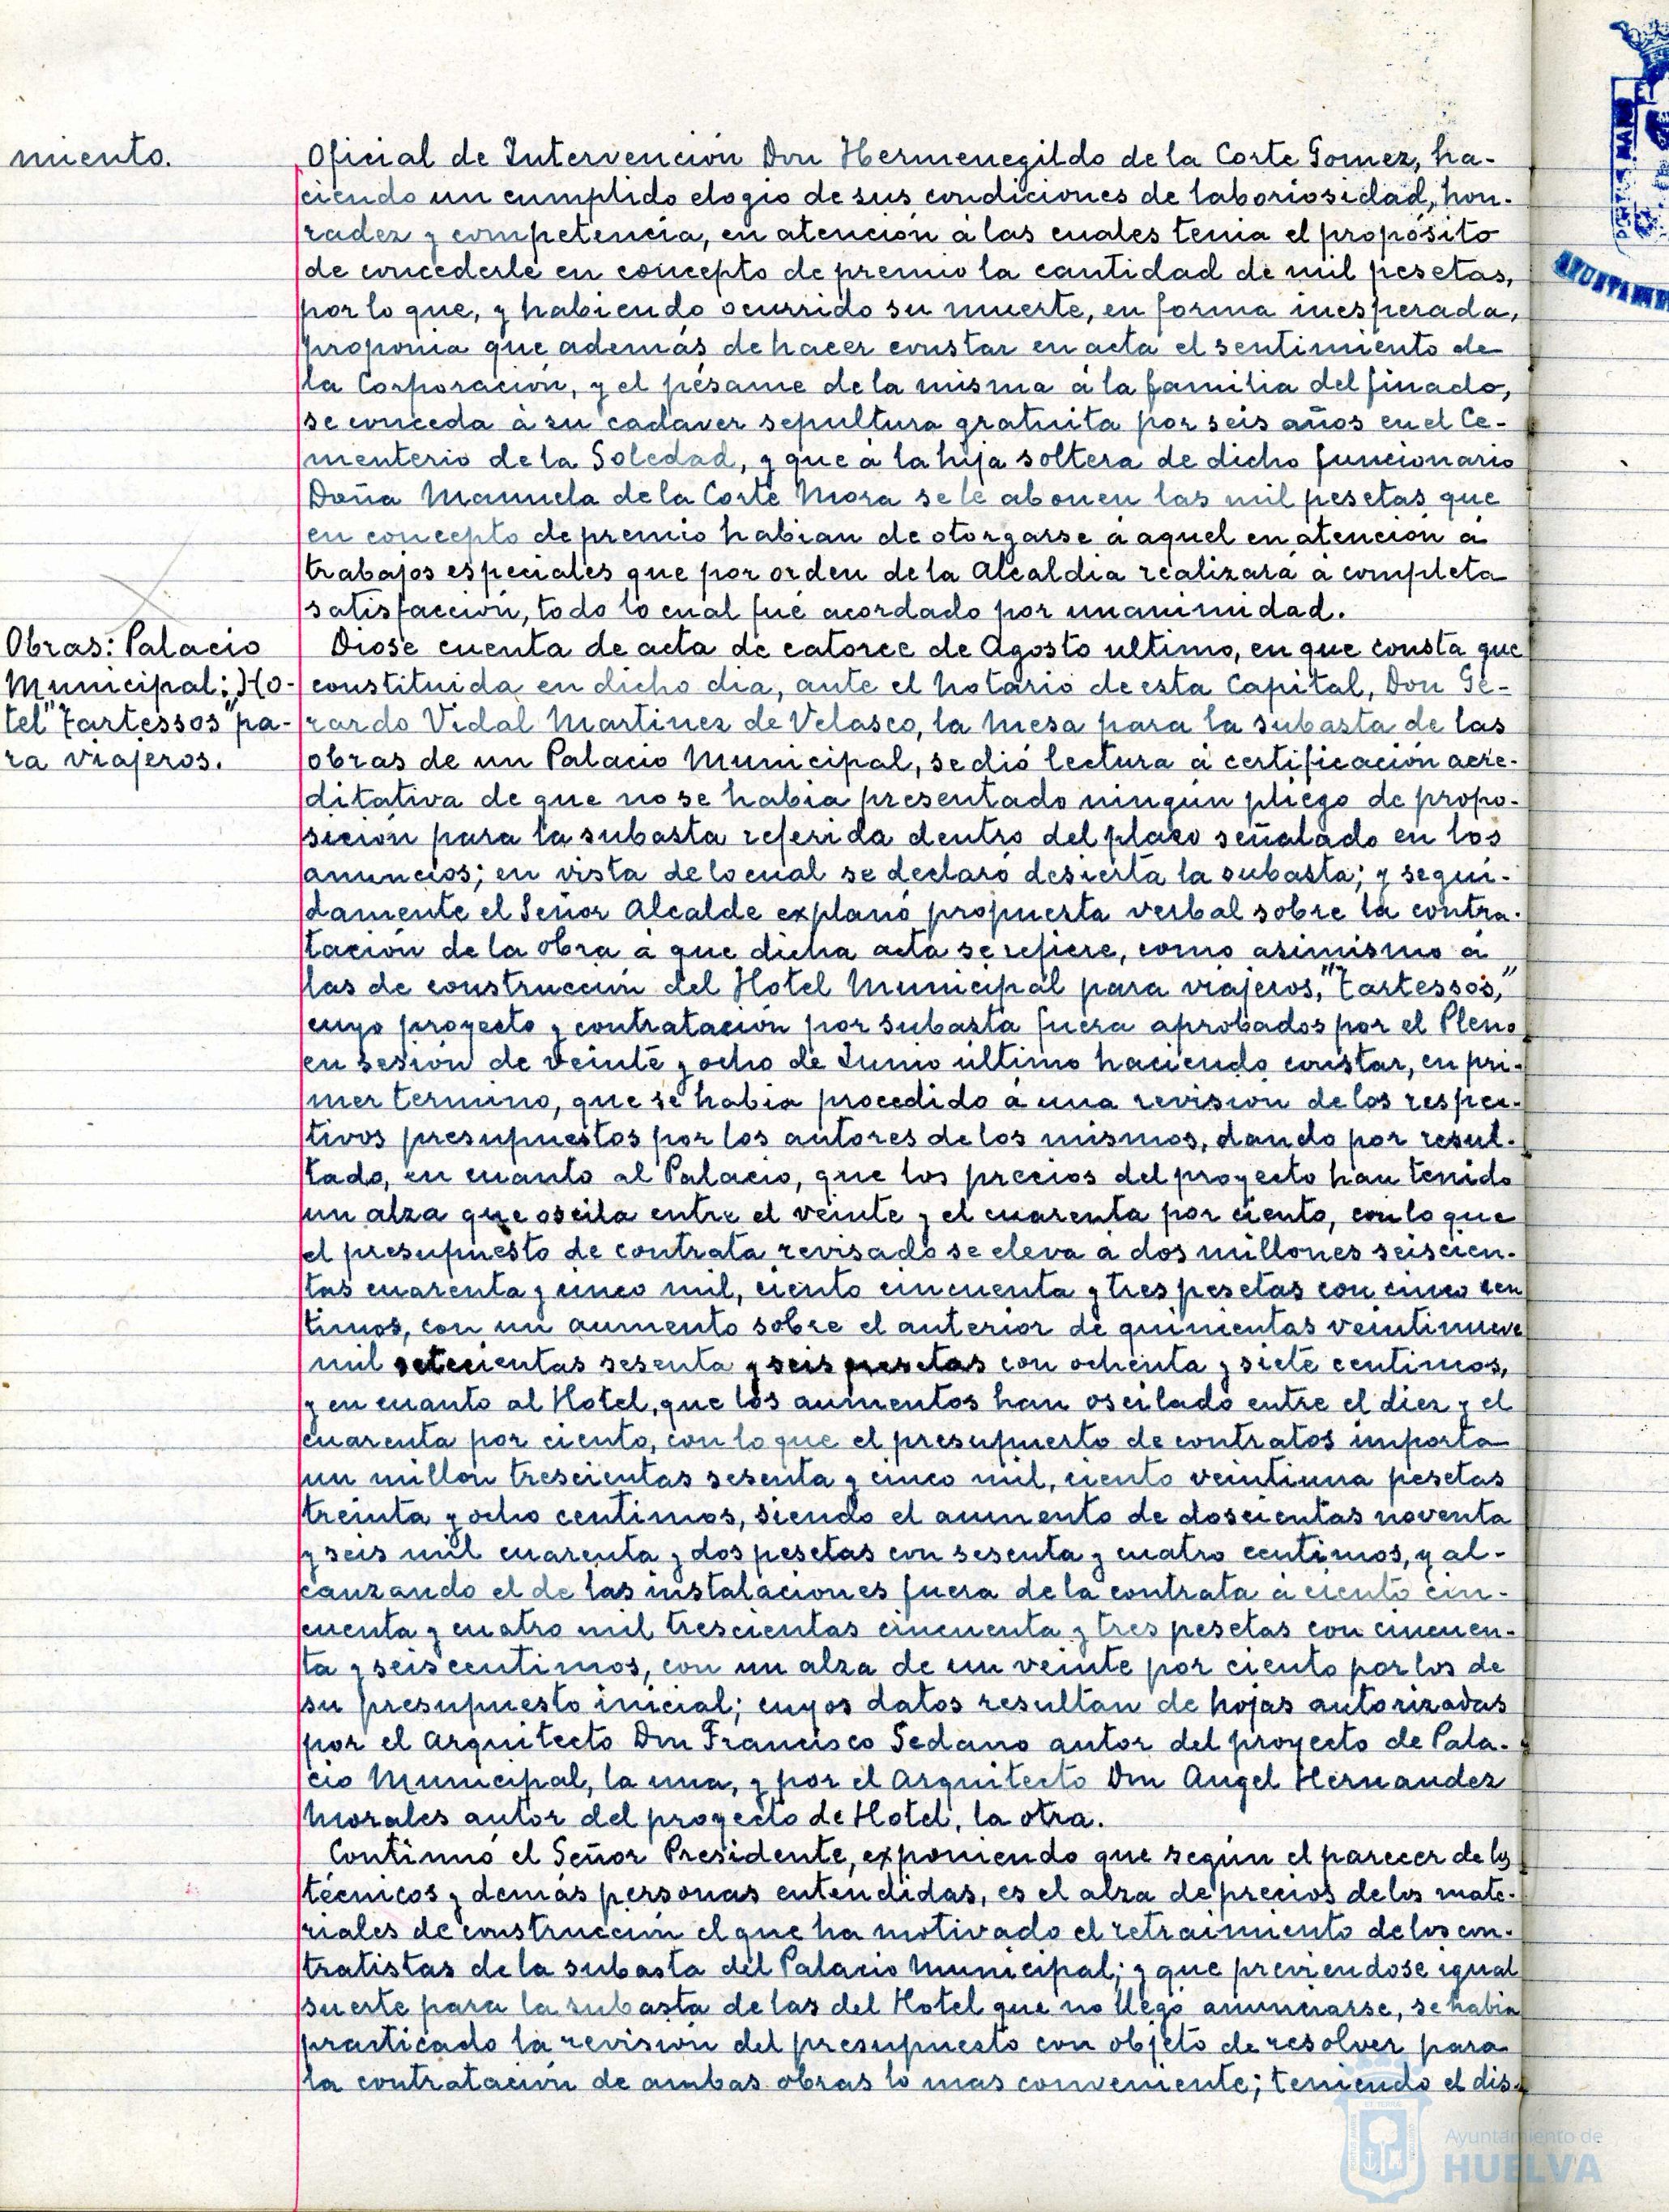 miento.
Oficial de Intervención Don Hermenegildo de la Corte Gomez, ha-
ciendo un cumplido elogio de sus condiciones de laboriosidad, hon-
radez y competencia, en atención á las cuales tenia el propósito
de concederle en concepto de premio la cantidad de mil pesetas,
por lo que, y habiendo ocurrido su muerte, en forma inesperada,
proponia que además de hacer constar en acta el sentimiento de
la Corporación, y el pésame de la misma á la familia del finado,
se conceda á su cadaver sepultura gratuita por seis años en el Ce-
menterio de la Soledad, y que á la hija soltera de dicho funcionario
Doña Manuela de la Corte Mora se le abonen las mil pesetas que
en concepto de premio habian de otorgarse á aquel en atención á
trabajos especiales que por orden de la Alcaldia realizará á completa
satisfacción, todo lo cual fué acordado por unanimidad.
Obras: Palacio
Municipal; Ho-
tel "Tartessos" pa-
ra viajeros.
Diose cuenta de acta de catorce de Agosto ultimo, en que consta que
constituida en dicho dia, ante el Notario de esta Capital, Don Ge-
rardo Vidal Martinez de Velasco, la Mesa para la subasta de las
obras de un Palacio Municipal, se dió lectura á certificación acre-
ditativa de que no se habia presentado ningún pliego de propo-
sición para la subasta referida dentro del plazo señalado en los
anuncios; en vista de lo cual se declaró desierta la subasta; y segui-
damente el Señor Alcalde explanó propuesta verbal sobre la contra-
tación de la obra á que dicha acta se refiere, como asimismo á
las de construcción del Hotel Municipal para viajeros, "Tartessos,"
cuyo proyecto y contratación por subasta fuera aprobados por el Pleno
en sesión de veinte y ocho de Junio último haciendo constar, en pri-
mer termino, que se habia procedido á una revisión de los respec-
tivos presupuestos por los autores de los mismos, dando por resul-
tado, en cuanto al Palacio, que los precios del proyecto han tenido
un alza que oscila entre el veinte y el cuarenta por ciento, con lo que
el presupuesto de contrata revisado se eleva á dos millones seiscien-
tas cuarenta y cinco mil, ciento cincuenta y tres pesetas con cinco cen
timos, con un aumento sobre el anterior de quinientas veintinueve
mil setecientas sesenta y seis pesetas con ochenta y siete centimos,
y en cuanto al Hotel, que los aumentos han oscilado entre el diez y el
cuarenta por ciento, con lo que el presupuesto de contratos importa
un millon trescientas sesenta y cinco mil, ciento veintiuna pesetas
treinta y ocho centimos, siendo el aumento de doscientas noventa
y seis mil cuarenta y dos pesetas con sesenta y cuatro centimos, y al-
canzando el de las instalaciones fuera de la contrata á ciento cin-
cuenta y cuatro mil trescientas cincuenta y tres pesetas con cincuen-
ta y seis centimos, con un alza de un veinte por ciento por los de
su presupuesto inicial; cuyos datos resultan de hojas autorizadas
por el Arquitecto Don Francisco Sedano autor del proyecto de Pala-
cio Municipal, la una, y por el Arquitecto Don Angel Hernandez
Morales autor del proyecto de Hotel, la otra.
Continuó el Señor Presidente, exponiendo que según el parecer de los
técnicos y demás personas entendidas, es el alza de precios de los mate-
riales de construcción el que ha motivado el retraimiento de los con-
tratistas de la subasta del Palacio Municipal; y que previendose igual
suerte para la subasta de las del Hotel que no llegó anunciarse, se habia
practicado la revisión del presupuesto con objeto de resolver para
la contratación de ambas obras lo mas conveniente; teniendo el dis-
Ayuntamiento de
HUELVA